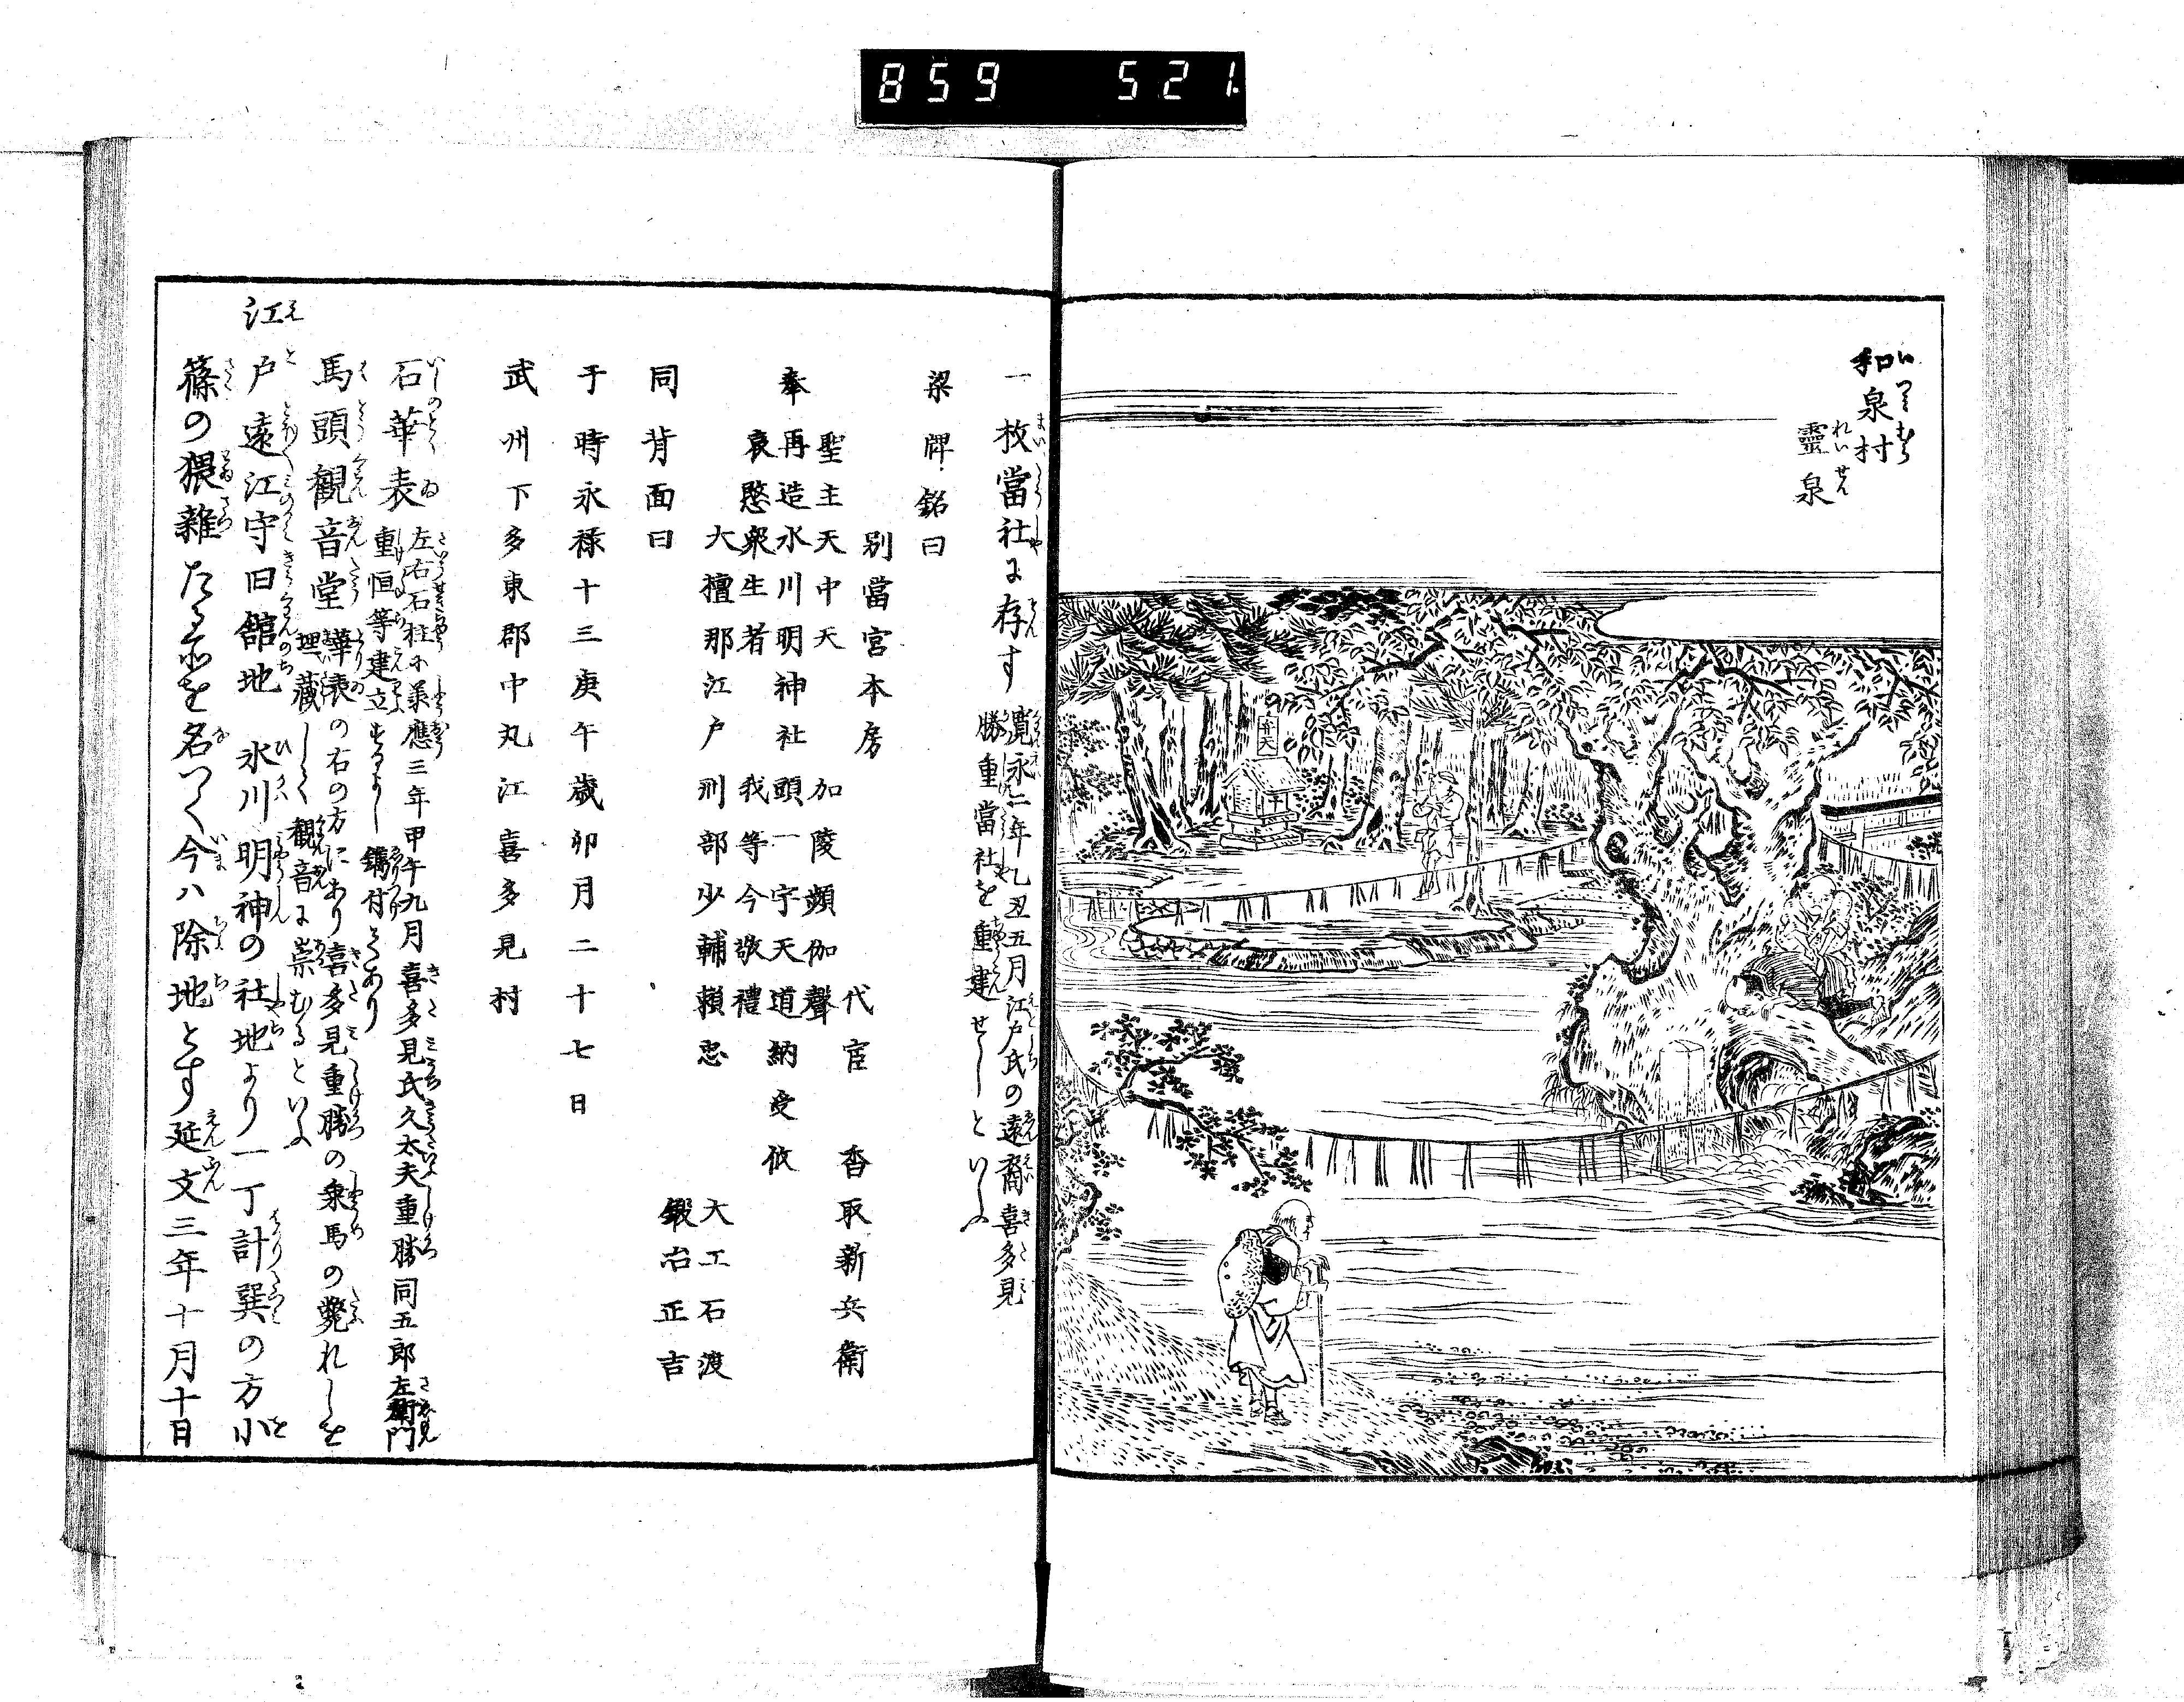 859 521
和泉村
いづみむら
靈泉
れいせん
弁天
一枚當社に存す 寛永二年乙丑五月江戸氏の遠裔喜多見
勝重當社を重建せしといふ
梁牌銘曰
別當宮本房 代官 香取新兵衛
聖主天中天 加陵頻伽聲
奉再造氷川明神社頭一宇天道納受攸
哀愍衆生者 我等今敬禮
大檀那江戸刑部少輔頼忠 大工石渡
鍛冶正吉
同背面曰
于時永禄十三庚午歳卯月二十七日
武州下多東郡中丸江喜多見村
石華表 左右石柱に承應三年甲午九月喜多見氏久太夫重勝同五郎左衛門
重恒等建立するよし鐫付てあり
馬頭觀音堂 華表の右の方にあり喜多見重勝の乗馬の斃れしを
埋藏しく觀音に崇むるといふ
江戸遠江守旧舘地 氷川明神の社地より一丁計巽の方小
篠の猥雜たる所を名つく今ハ除地とす延文三年十月十日